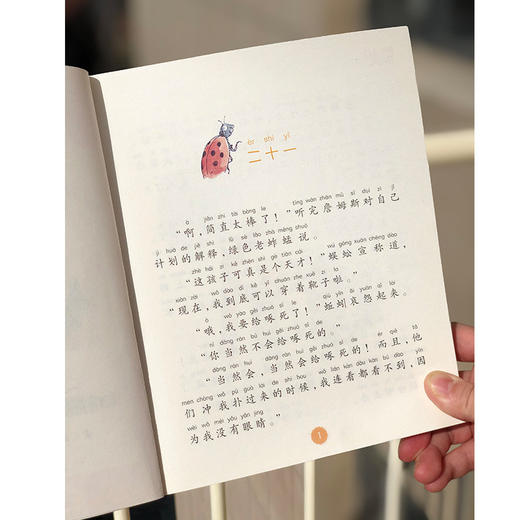 èr shí yī
二十一
ā jiǎn zhí tài bàng le tīng wán zhān mǔ sī duì zì jǐ
“啊，简直太棒了！”听完詹姆斯对自己
jì huà de jiě shì lǜ sè lǎo zhà měng shuō
计划的解释，绿色老蚱蜢说。
zhè hái zi kě zhēn shì gè tiān cái wú gōng xuān chēng dào
“这孩子可真是个天才！”蜈蚣宣称道，
xiàn zài wǒ dào dǐ kě yǐ chuān zhe xuē zi la
“现在，我到底可以穿着靴子啦。”
ò wǒ yào gěi zhuó sǐ le qiū yǐn āi yuàn qǐ lái
“哦，我要给啄死了！”蚯蚓哀怨起来。
nǐ dāng rán bú huì gěi zhuó sǐ de
“你当然不会给啄死的。”
dāng rán huì dāng rán huì gěi zhuó sǐ de ér qiě tā
“当然会，当然会给啄死的！而且，他
men chòng wǒ pū guò lái de shí hou wǒ lián kàn dōu kàn bú dào yīn
们冲我扑过来的时候，我连看都看不到，因
wèi wǒ méi yǒu yǎn jing
为我没有眼睛。”
1